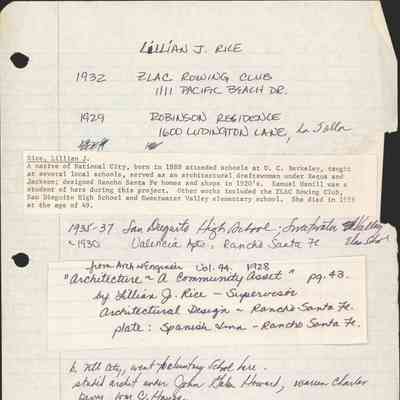 LILLIAN J. RICE
1932 ZLAC ROWING CLUB
1111 PACIFIC BEACH DR.
1929 ROBINSON RESIDENCE
1600 LUDINGTON LANE, La Jolla
Rice, Lillian J.
A native of National City, born in 1888 attended schools at U. C. Berkeley, taught
at several local schools, served as an architectural draftswoman under Requa and
Jackson; designed Rancho Santa Fe homes and shops in 1920's. Samuel Hamill was a
student of hers during this project. Other works included the ZLAC Rowing Club,
San Dieguito High School and Sweetwater Valley elementary school. She died in
at the age of 49.
1935-37 San Dieguito High School; Sweetwater Valley
~1930 Valencia Apts, Rancho Santa Fe Elem School
from Arch & Engineer Vol. 94. 1928
"Architecture - A Community Asset" pg. 43.
by Lillian J. Rice - Supervisor
Architectural Design - Rancho Santa Fe.
plate: Spanish Inn - Rancho Santa Fe.
b. Ntl City, went to elementary School here.
studied archit under John Galen Howard, Warren Charles
Perry, Wm C. Hays.